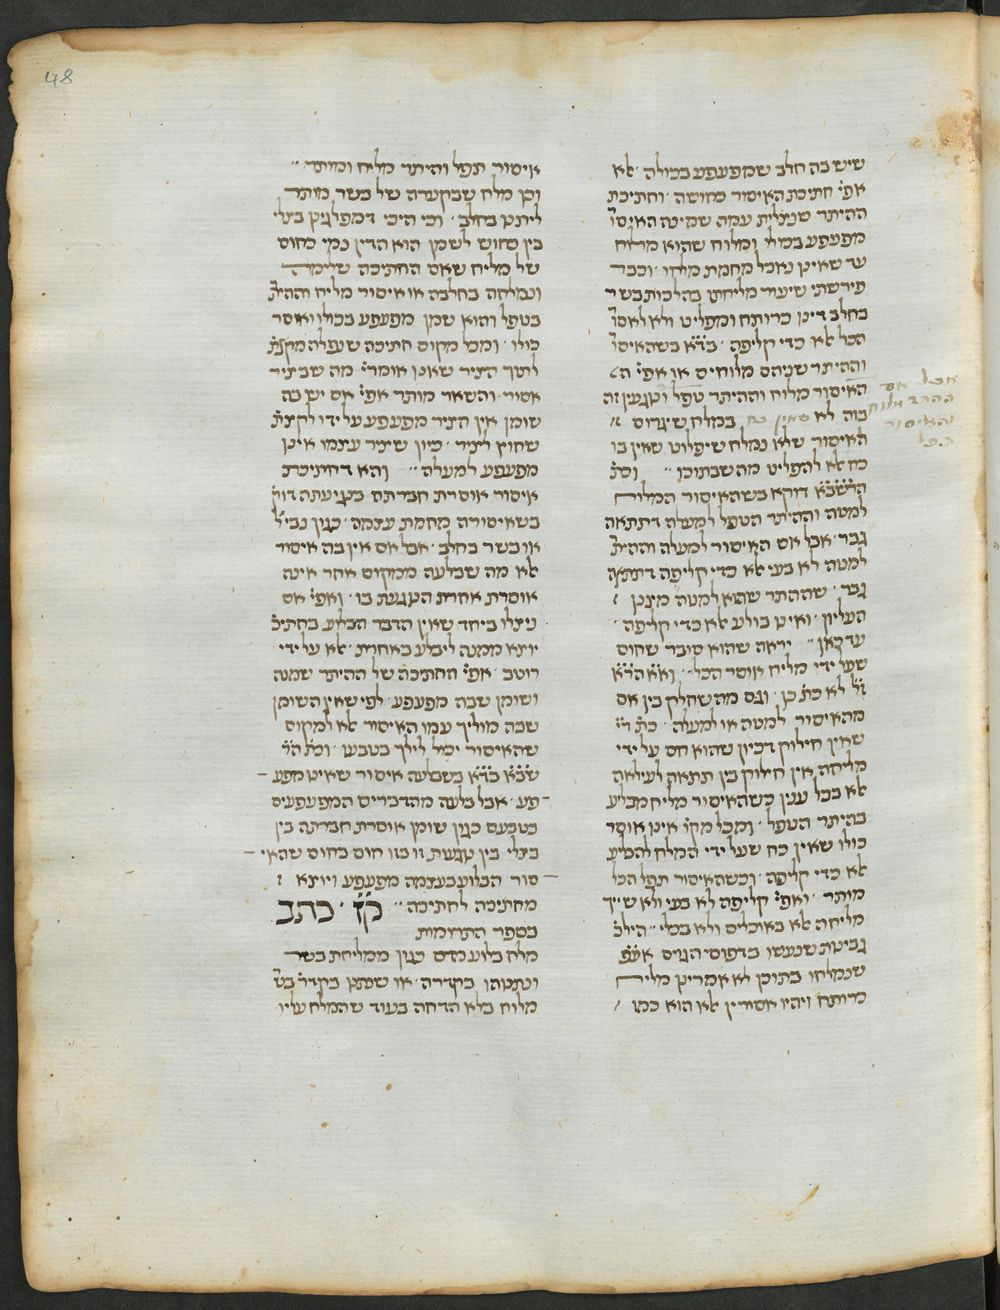 48
שיש בה חלב שמפעפע בכולה׳ אלא
אפי׳ חתיכת האיסור כחושה׳ וחתיכת
ההיתר שנצלית עמה שמינה האיסו׳
מפעפע בכולי ומלוח שהוא מליח
עד שאינו נאכל מחמת מלחו׳ וכבר
פירשתי שיעור מליחתן בהלכות בשר
בחלב דינו כרותח ומפליט ולא לאסו׳
הכל אלא כדי קליפה׳ בד״א בשהאיסו׳
וההיתר שניהם מלוחים או אפי׳ הי׳
האיסור מלוח וההיתר טפל ונוגעין זה
בזה לא שאין כח במלח שיגרום
האיסור שלא נמלח שיפלוט שאין בו
כח אלא להפליט מה שבתוכו׳׳ וכת׳
הרשב״א דוקא בשהאיסור המלוח
למטה וההיתר הטפל למעלה דתתאה
גבר׳ אבל אם האיסור למעלה וההית׳
למטה לא בעי אלא כדי קליפה דתתאה
גבר׳ שההתר שהוא למטה מצנן
העליון׳ ואינו בולע אלא כדי קליפה׳
עד כאן׳׳ יראה שהוא סובר שחום
שעל ידי מליח אוסר הכל׳׳ וא״א הרא״ש
ז״ל לא כת׳ כן׳ וגם מה שחלק בין אם
מהאיסור למטה או למעלה׳ כת׳ ר״י
שאין חילוק דכיון שהוא חם על ידי
מליחה אין חילוק בין תתאה לעילאה
אלא בכל ענין כשהאיסור מליח מבליע
בהיתר הטפל׳ ומכל מקו׳ אינו אוסר
כולו שאין כח שעל ידי המלח להבליע
אלא כדי קליפה׳ וכשהאיסור תפל הכל
מותר׳ ואפי׳ קליפה לא בעי ולא שייך
מליחה אלא באוכלים ולא בכלי׳׳ הילכ׳
גבינות שנעשו בדפוסי הגוים אע״פ
שנמלחו בתוכן לא אמרינן מליח
כרותח ויהיו אסורין אלא הוא כמו
אבל אם
ההתר מלוח
והאיסור
תפל
איסור תפל והיתר מליח ומותר׳׳
וכן מלח שבקערה של בשר מותר
ליתנו בחלב׳ וכי היכי דמפלגינן בצלי
בין כחוש לשמן הוא הדין נמי בחום
של מליח שאם החתיכה שלימה
ונמלחה בחלבה או איסור מליח וההית׳
בטפל והוא שמן מפעפע בכולו ואוסר
כולו׳ ומכל מקום חתיכה שנפלה מקצת׳
לתוך הציר שאנו אומרי׳ מה שבציר
אסור׳ והשאר מותר אפי׳ אם יש בה
שומן אין הציר מפעפע על ידו לקצת
שחוץ לציר׳ כיון שציר עצמו אינו
מפעפע למעלה׳׳ והא דחתיכת
איסור אוסרת חברתה בנגיעתה דוק׳
בשאיסורה מחמת עצמה׳ כגון נביל׳
או בשר בחלב׳ אבל אם אין בה איסור
אלא מה שבלעה ממקום אחר אינה
אוסרת אחרת הנוגעת בו׳ ואפי׳ אם
נצלו ביחד שאין הדבר הבלוע בחתיכ׳
יוצא ממנה ליבלע באחרת׳ אלא על ידי
רוטב׳ אפי׳ החתיכה של ההיתר שמנה
ושומן שבה מפעפע׳ לפי שאין השומן
שבה מוליך עמו האיסור אלא למקום
שהאיסור יכול לילך בטבעו׳ וכת׳ הר׳
שב״א בד״א בשבלעה איסור שאינו מפע
פע׳ אבל בלעה מהדברים המפעפעים
בטבעם כגון שומן אוסרת חברתה בין
בצלי בין נוגעת זו בזו חום בחום שהאי
סור הבלוע בעצמה מפעפע ויוצא
מחתיכה לחתיכה׳׳ קז׳ כתב
בספר התרומות
מלח בלוע מדם כגון ממליחת בשר
ונתנוהו בקדרה׳ או שנתנו בקדר׳ בש׳
מלוח בלא הדחה בעוד שהמלח עליו